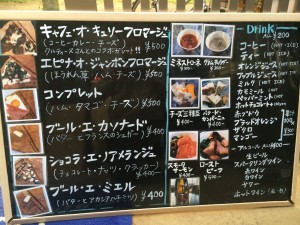 キャフェ・オ・キュリーフロマージュ
(コーヒーカレー・チーズ) ¥500
エピナ・オ・ジャンボンフロマージュ
(ほうれん草 ハム・チーズ) ¥500
コンプレット
(ハム・タマゴ・チーズ) ¥500
ブール・エ・カソナード
(バターとフランスのシュガー) ¥400
ショコラ・エ・
(チョコレート・ナッツ・クラッカー) ¥400
ブール・エ・ミエル
(バターとアカシアハチミツ) ¥400
ミネストローネ
チーズ三種盛
パテ・ド・カンパーニュ
スモークサーモン
ローストビーフ
Drink
ALL ¥200
コーヒー (HOT・ICE)
ティー (HOT・ICE)
オレンジジュース
アップルジュース
ミルク (HOT・ICE)
カモミール
ペパーミント
ホットチョコレート
赤ブドウ
ブラッドオレンジ
ザクロ
アルコール ALL ¥400
生ビール
スパークリングワイン
赤ワイン
白ワイン
サワー
ホットワイン